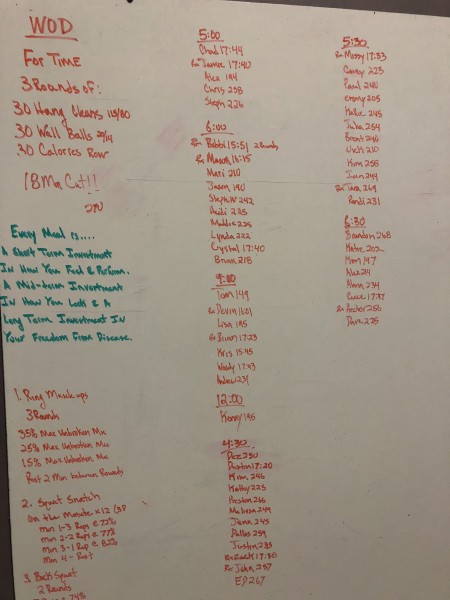 WOD
For Time
3 Rounds of:
30 Hang Cleans 115/80
30 Wall Balls 20/14
30 Calories Row
18 Min Cut!!
270
Every Meal is....
A Short Term Investment
In How You Feel & Perform.
A Mid-term Investment
In How You Look & A
Long Term Investment In
Your Freedom From Disease.
1. Ring Muscle-ups
3 Rounds
35% Max Unbroken Mu
25% Max Unbroken Mu
15% Max Unbroken Mu
Rest 2 Min between Rounds
2. Squat Snatch
On the Minute x 12
Min 1-3 Reps @ 72%
Min 2-2 Reps @ 77%
Min 3-1 Rep @ 82%
Min 4 - Rest
3. Back Squat
2 Rounds
5:00
Chad 17:44
Rx Jamie 17:40
Alex 194
Chris 258
Steph 226
6:00
Rx Bobbi 15:51 2 Rounds
Rx Mason 16:15
Mari 210
Jason 190
Steph W 242
Heidi 225
Maddie 225
Lynda 222
Crystal 17:40
Brian 218
9:00
Tom 149
Rx Devin 16:01
Lisa 195
Rx Brian 17:23
Kris 15:45
Woody 17:43
Andrew 234
12:00
Kenny 195
4:30
Dez 230
Dustin 17:20
Kim 246
Kathy 225
Preston 266
Melissa 249
Jenn 245
Dallas 259
Justin 235
Rx Zack 17:30
Rx John 257
ED 267
5:30
Rx Missy 17:53
Casey 223
Paul 240
205
Hallie 245
Julia 254
Brent 246
Nick 210
Kim 258
Jen 244
Rx Tara 269
Randi 231
6:30
Brandon 268
Katie 202
Mom 197
Alex 214
Hann 234
17:47
Rx Archer 256
Dave 225